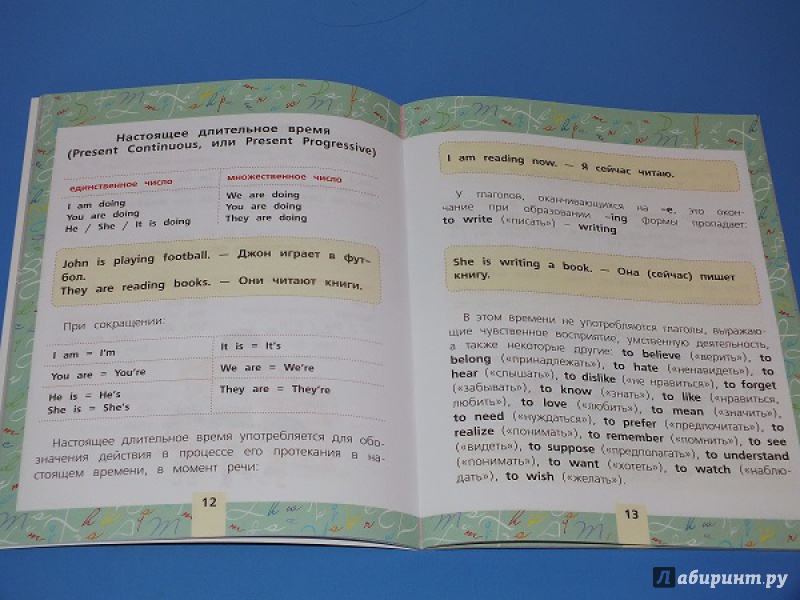 Настоящее длительное время
(Present Continuous, или Present Progressive)
единственное число множественное число
I am doing We are doing
You are doing You are doing
He / She / It is doing They are doing
John is playing football. — Джон играет в фут-
бол.
They are reading books. — Они читают книги.
При сокращении:
I am = I'm It is = It's
You are = You're We are = We're
He is = He's They are = They're
She is = She's
Настоящее длительное время употребляется для обо-
значения действия в процессе его протекания в на-
стоящем времени, в момент речи:
12
I am reading now. — Я сейчас читаю.
У глаголов, оканчивающихся на -е, это окон-
чание при образовании -ing формы пропадает:
to write («писать») – writing
She is writing a book. — Она (сейчас) пишет
книгу.
В этом времени не употребляются глаголы, выражаю-
щие чувственное восприятие, умственную деятельность,
а также некоторые другие: to believe («верить»), to
belong («принадлежать»), to hate («ненавидеть»), to
hear («слышать»), to dislike («не нравиться»), to forget
(«забывать»), to know («знать»), to like («нравиться,
любить»), to love («любить»), to mean («значить»),
to need («нуждаться»), to prefer («предпочитать»), to
realize («понимать»), to remember («помнить»), to see
(«видеть»), to suppose («предполагать»), to understand
(«понимать»), to want («хотеть»), to watch («наблю-
дать»), to wish («желать»).
13
Лабиринт.ру